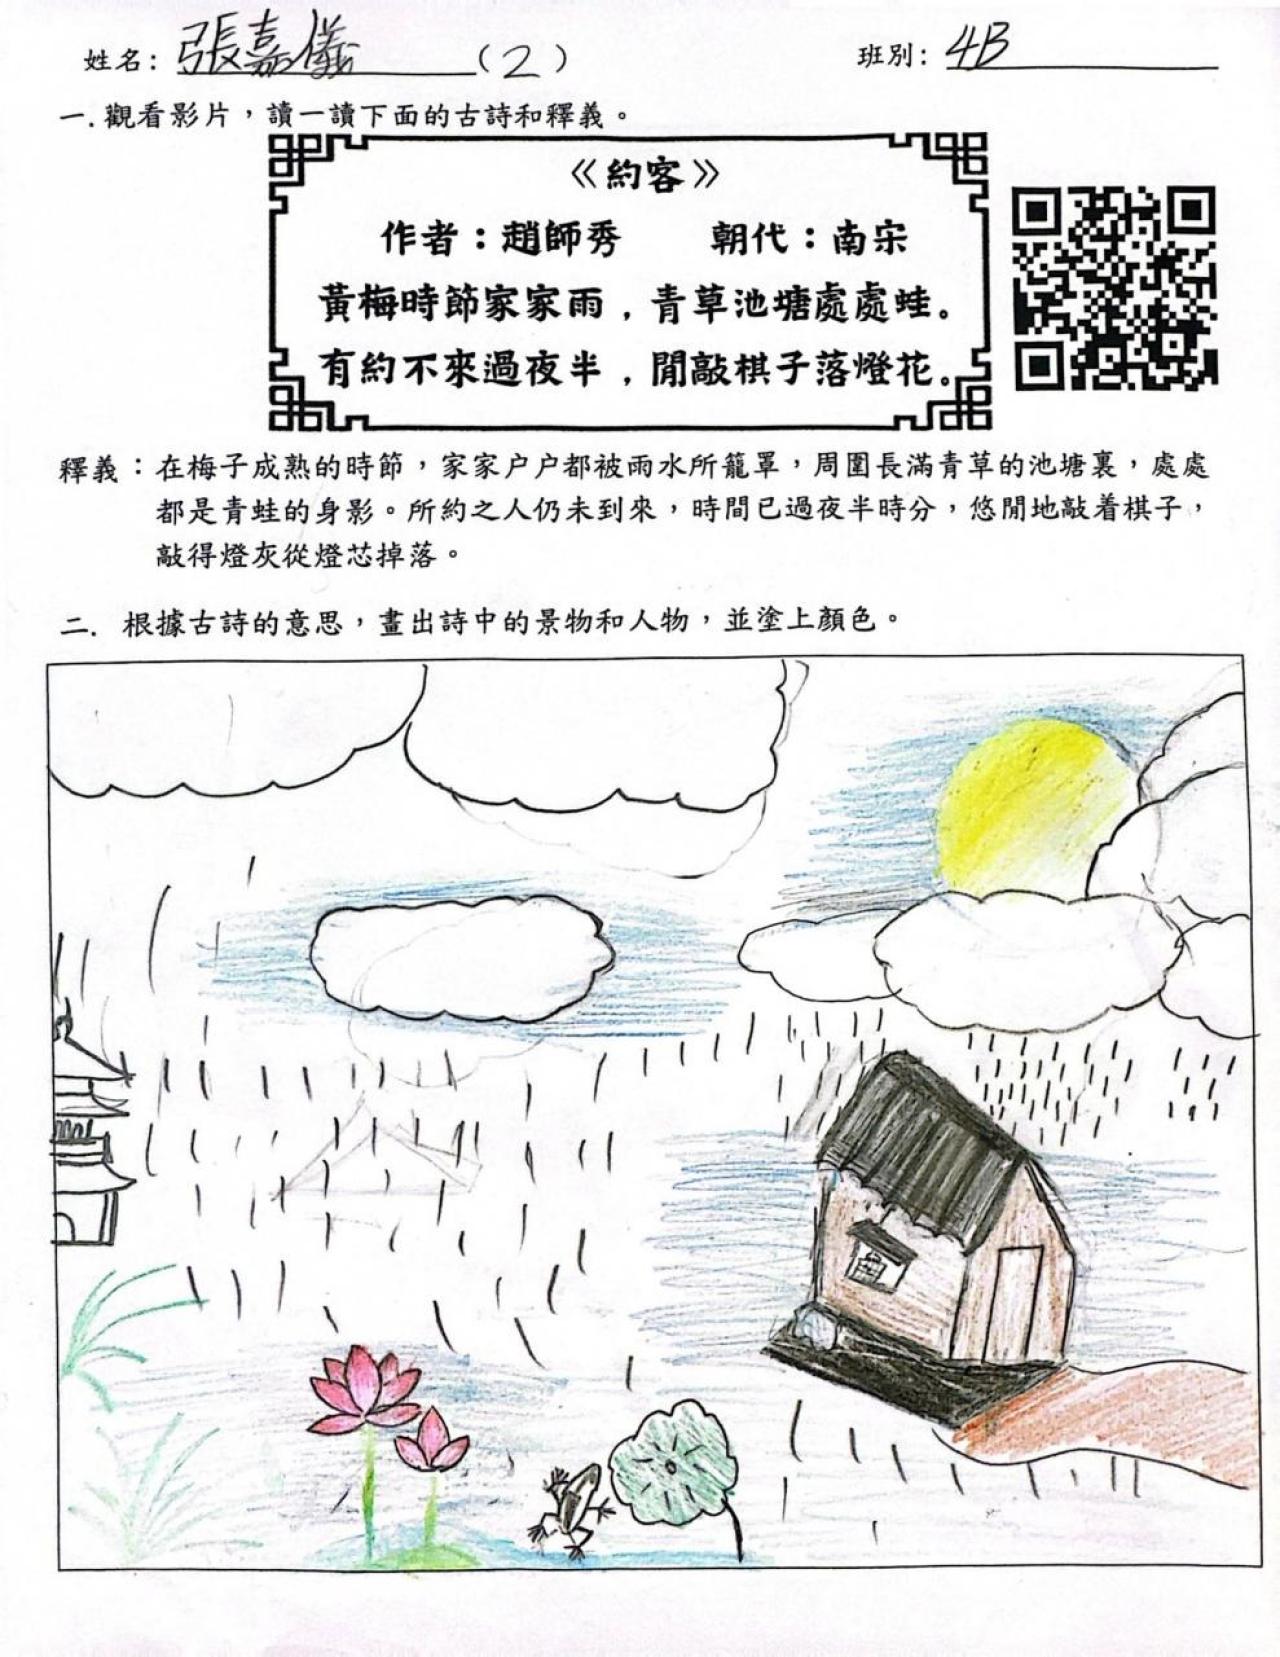 姓名：張嘉儀（2） 班別：4B
一.觀看影片，讀一讀下面的古詩和釋義。
《約客》
作者：趙師秀 朝代：南宋
黃梅時節家家雨，青草池塘處處蛙。
有約不來過夜半，閒敲棋子落燈花。
釋義：在梅子成熟的時節，家家户户都被雨水所籠罩，周圍長滿青草的池塘裏，處處
都是青蛙的身影。所約之人仍未到來，時間已過夜半時分，悠閒地敲着棋子，
敲得燈灰從燈芯掉落。
二. 根據古詩的意思，畫出詩中的景物和人物，並塗上顏色。